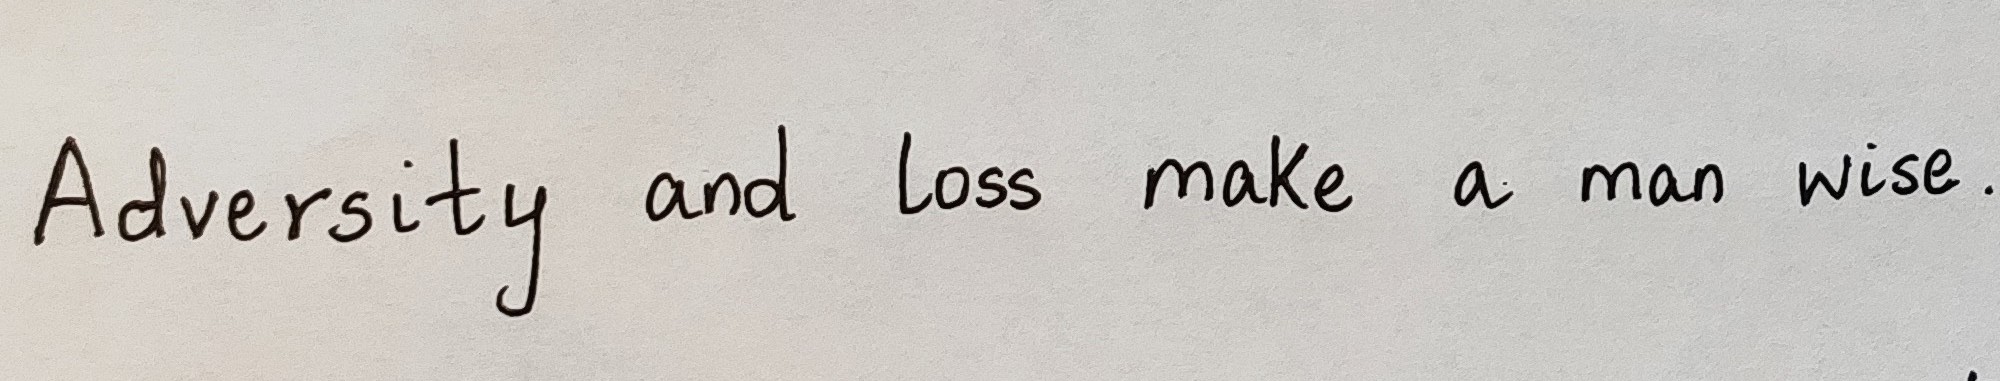 Adversity and loss make a man wise.